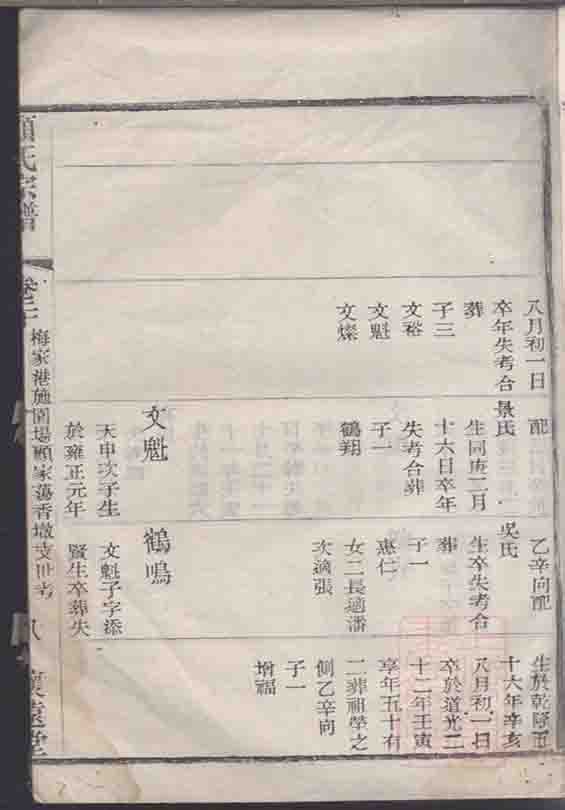 八月初一日
卒年失考合
葬
子三
文裕
文魁
文燦
配
景氏
生同庚二月
十六日卒年
失考合葬
子一
鶴翔
文魁
天申次子生
於雍正元年
乙辛向配
吳氏
生卒失考合
葬
子一
惠仁
女二長適潘
次適張
鶴鳴
文魁子字添
賢生卒葬失
生於乾隆五
十六年辛亥
八月初一日
卒於道光二
十二年壬寅
享年五十有
二葬祖塋之
側乙辛向
子一
增福
顧氏宗譜
卷二
梅家港施圍場顧家蕩香墩支世考
八
懷遠堂